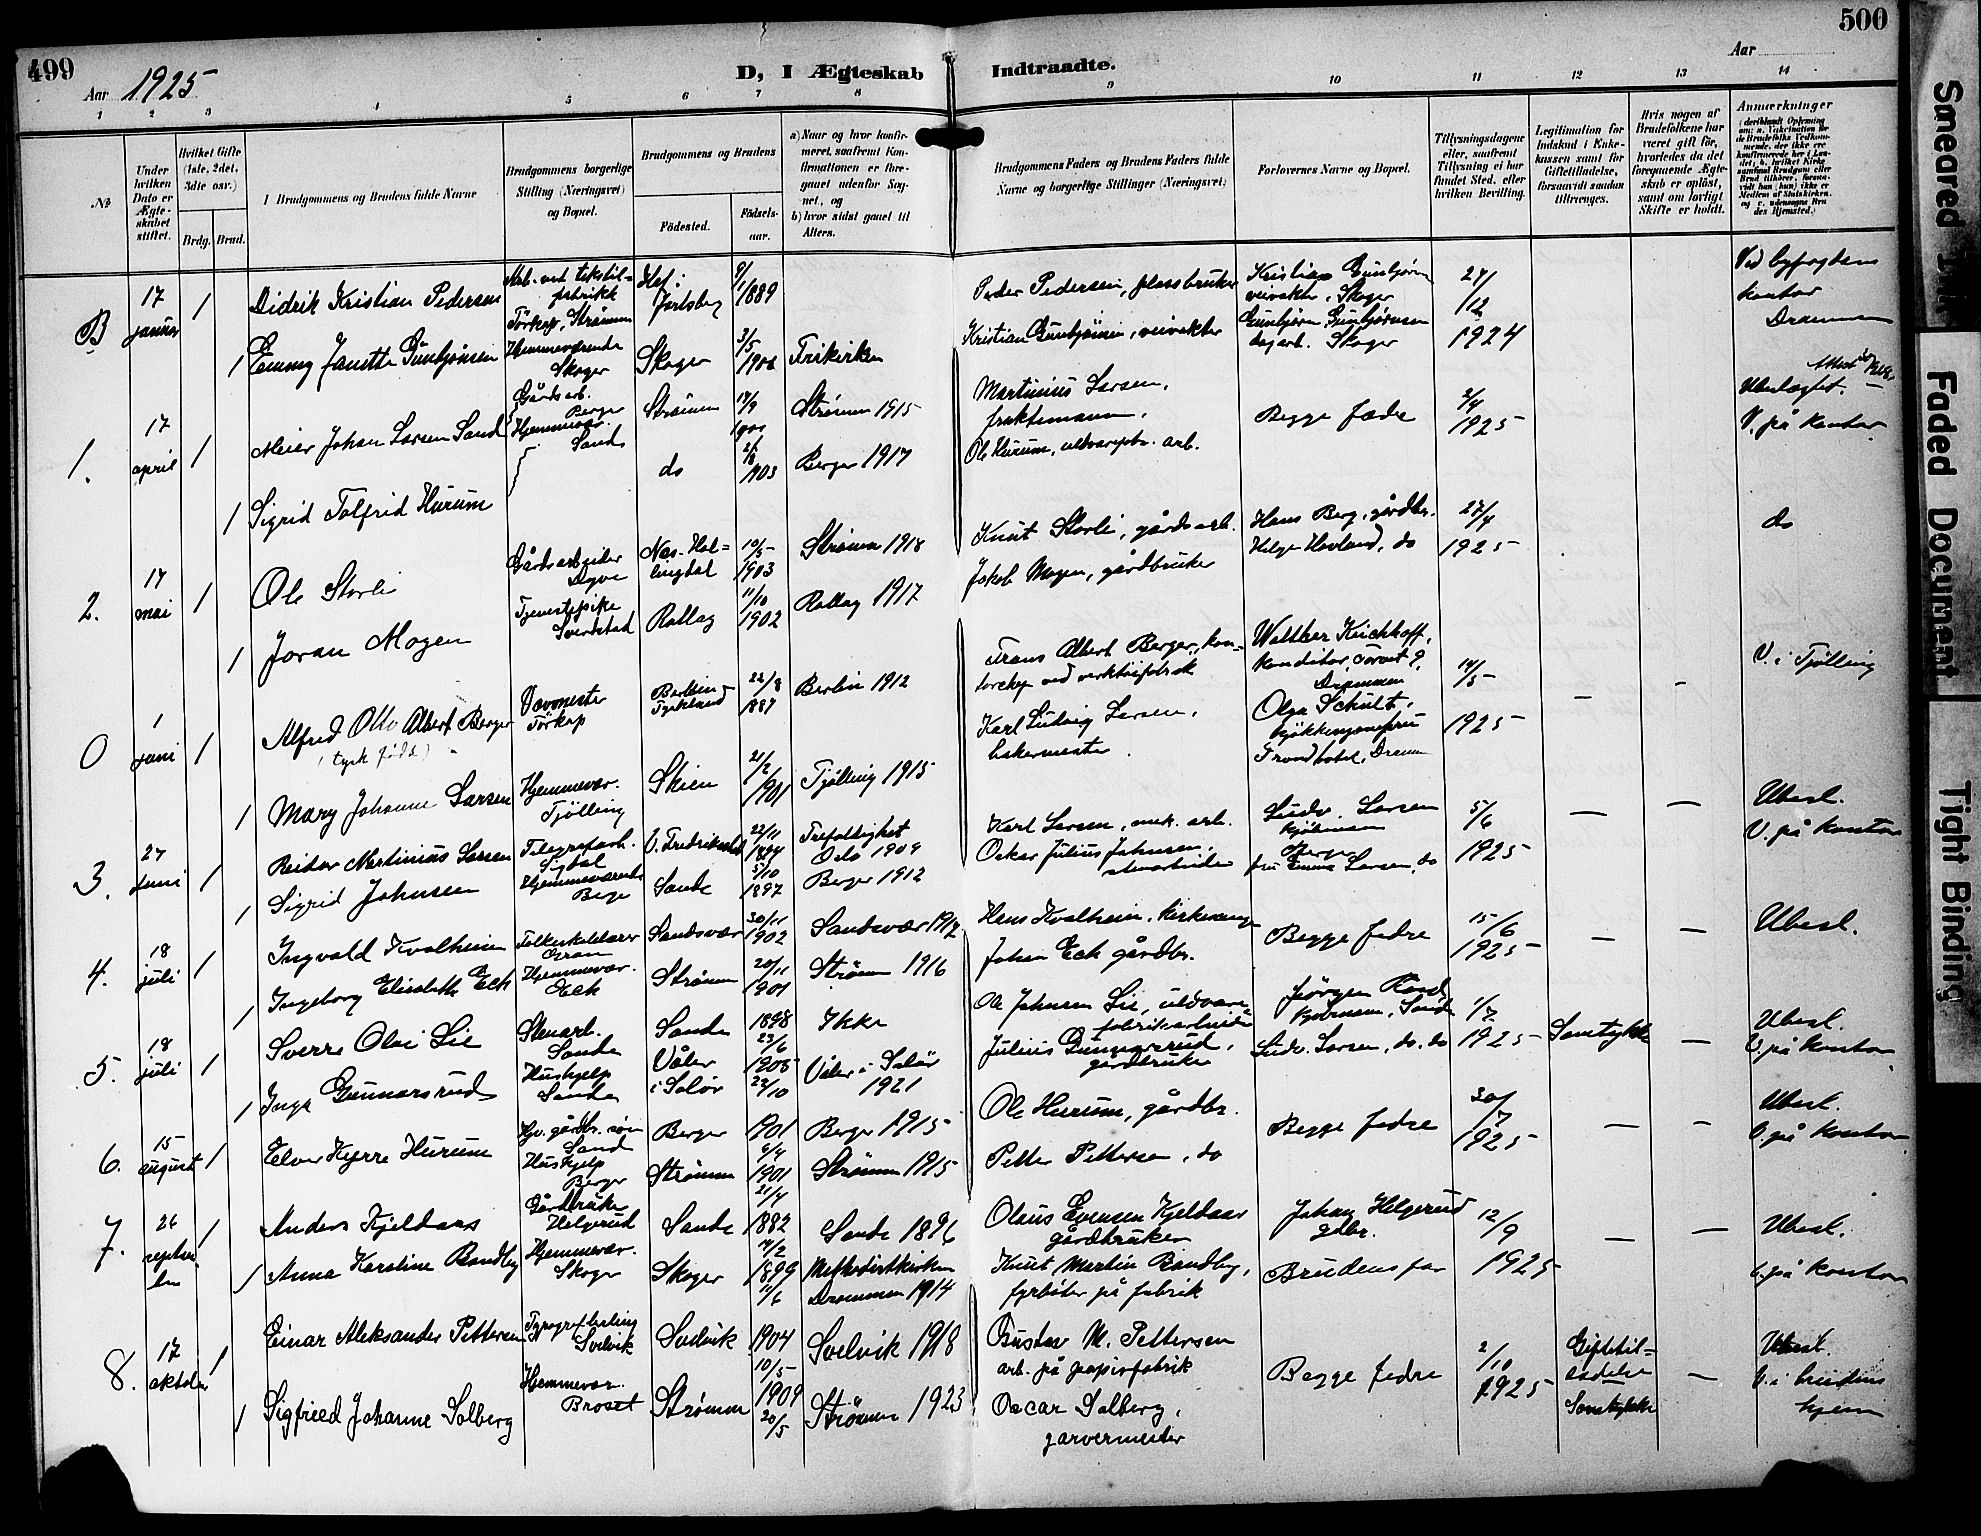 499
Aar 1925
D, I Ægteskab Indtraadte.
500
Aar
1 2 3 4 5 6 7 8 9 10 11 12 13 14
No
Under hvilken Dato er Ægteskabet stiftet.
Hvilket Gifte (1ste, 2det, 3die osv.)
Brdg. Brud.
Brudgommens og Brudens fulde Navne
Brudgommens borgerlige Stilling (Næringsvei) og Bopæl.
Brudgommens og Brudens
Fødested.
Fødselsaar.
a) Naar og hvor konfirmeret, saafremt Konfirmationen er foregaaet udenfor Sognet, og
b) hvor sidst gaaet til Alters.
Brudgommens Faders og Brudens Faders fulde Navne og borgerlige Stillinger (Næringsvei)
Forlovernes Navne og Bopæl.
Tillysningsdagene eller, saafremt Tillysning ei har fundet Sted, efter hvilken Bevilling.
Legitimation for Indskud i Enkekassen samt for Giftetilladelse, forsaavidt saadan tiltrænges.
Hvis nogen af Brudefolkene har været gift før, hvorledes da det foregaaende Ægteskab er opløst, samt om lovligt Skifte er holdt.
Anmærkninger
B 17 januar 1 Didrik Kristian Pedersen Arb. ved tekstilfabrikk Tørkop, Strømm Hof i Jarlsberg 9/1 1889 Peder Pedersen, plassbruker Kristian Gunbjørn veivakter, Skoger 27/12 1924 Ved byfogdens kontor Drammen
1 Emmy Janette Gunbjønsen Hjemmeværende Skoger Skoger 3/5 Frikirken Kristian Gunbjønsen, veivakter Gunbjørn Gunbjørnsen dagarb. Skoger
1. 17 april 1 Meier Johan Larsen Sand Gårdsarb. Berger Strømm 1901 Strømm 1915 Martinius Larsen, fraktemann. Begge fædre 2/4 1925 V. på kontor
1 Sigrid Tolfrid Hurum Hjemmevær. Sand do 1903 Berger 1917 Ole Hurum, uldvarefabr. arb.
2. 17 mai 1 Ole Storli Gårdsarbeider Nes, Hallingdal 10/5 1903 Strømm 1918 Knut Storli, gårdsarb. Hans Berg, gårdbr. 27/4 1925 do
1 Joran Mogen Tjenestepike Rollag 11/10 1902 Rollag 1917 Jakob Mogen, gårdbruker Helge Hovland, do
0 1 juni 1 Alfred Otto Albert Berger (tysk født) Vævmester Tørkop Berlin Tyskland 22/8 1887 Berlin 1912 Frans Albert Berger, ved verktøifabrik Walther Kirchhoff, konditor, Torvet 9, Drammen 14/5 1925 – – V. i Tjølling
1 Mary Johanne Larsen Hjemmevær. Tjølling Skien 21/2 1901 Tjølling 1915 Karl Ludvig Larsen, bakermester Olga Schult, kjøkkensjomfru Drammen
3. 27 juni 1 Reidar Martinius Larsen Telegrafarb. Sigdal V. Fredrikstad 22/11 1894 Trefoldighet Oslo 1909 Karl Larsen, mek. arb. Ludv. Larsen kjøbmann Berger 5/6 1925 – – Ubesl. V. på kontor
1 Sigrid Johnsen Hjemmeværende Berger Sande 5/10 1897 Berger 1912 Oskar Julius Johnsen, stenarbeider fru Emma Larsen, do
4. 18 juli 1 Ingvald Kvalheim Folkeskolelærer Gran Sandsvær 30/11 1902 Sandsvær 1917 Hans Kvalheim, kirkesanger Begge fedre 15/6 1925 – – Ubesl.
1 Ingeborg Elisabeth Eck Hjemmevær. Eck Strømm 20/11 1901 Strømm 1916 Johan Eck gårdbr.
5. 18 juli 1 Sverre Olai Lie Stenarb. Sande Sande 1898 23/6 Ikke Ole Johnsen Lie, uldvarefabrikarbeider Jørgen Rød, kjøbmann, Sande 1/7 1925 Samtykke – Ubesl. V. på kontor
1 Inga Gunnarsrud Hushjelp Sande Våler i Solør 1905 22/10 Våler i Solør 1921 Julius Gunnarsrud, gårdbruker Ludv. Larsen, do. do
6. 15 august 1 Elver Kyrre Hurum Hjv. gårdbr. søn Sand Berger 1901 6/4 Berger 1915 Ole Hurum, gårdbr. Begge fedre 30/7 1925 – – Ubesl. V. på kontor
Hushjelp Berger Strømm 1901 21/4 Strømm 1915 Petter Pettersen, do
7. 26 september 1 Anders Kjeldaas Gårdbruker Helgerud Sande 1882 14/2 Sande 1896 Olaus Evensen Kjeldaas gårdbruker Johan Helgerud gdbr. 12/9 1925 – – Ubesl. V. på kontor
1 Anna Karoline Bandby Hjemmevær. Skoger Skoger 1899 11/6 Methodistkirken Drammen 1914 Knut Martin Bandby, fyrbøter på fabrik Brudens far
8. 17 oktober 1 Einar Aleksander Pettersen Svelvik Svelvik 1904 10/5 Svelvik 1918 Gustav M. Pettersen arb. på papirfabrik Begge fedre 2/10 1925 Giftetilladelse Samtykke – Ubesl. V. i brudens hjem
1 Sigfried Johanne Solberg Hjemmevær. Broset Strømm 1909 20/5 Strømm 1923 Oscar Solberg, garvermester
Smeared Ink
Faded Document
Tight Binding